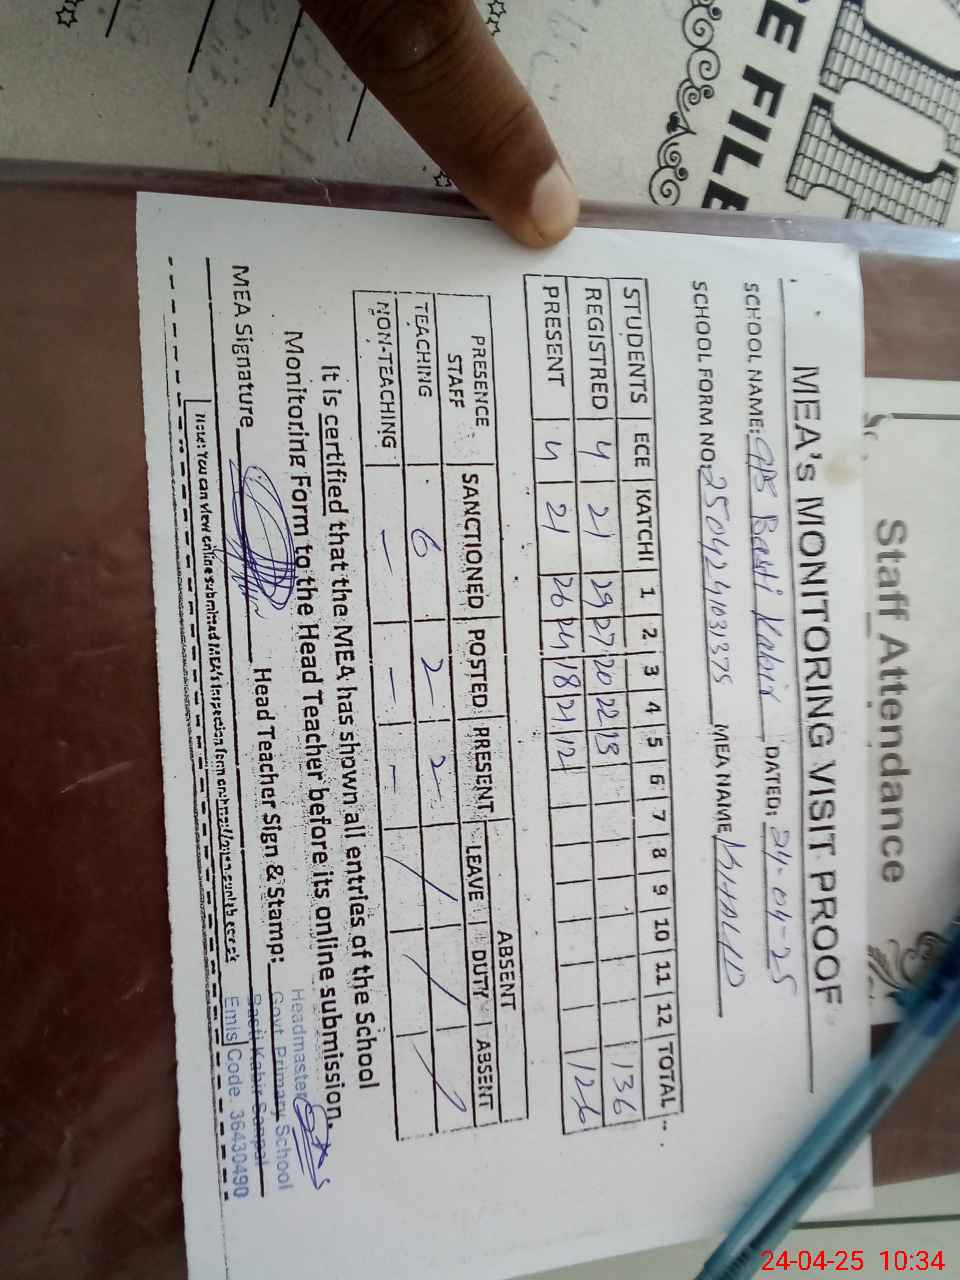 E FILE
Staff Attendance
MEA's MONITORING VISIT PROOF
SCHOOL NAME: GPS Basti Kabir DATED: 24-04-25
SCHOOL FORM NO: 2504241031375 MEA NAME KHALID
STUDENTS ECE KATCHI 1 2 3 4 5 6 7 8 9 10 11 12 TOTAL
REGISTRED 4 21 29 27 20 22 13 136
PRESENT 4 21 26 24 18 21 12 126
PRESENCE STAFF SANCTIONED POSTED PRESENT ABSENT
LEAVE DUTY ABSENT
TEACHING 6 2 2 / / /
NON-TEACHING - - -
It is certified that the MEA has shown all entries of the School
Monitoring Form to the Head Teacher before its online submission.
MEA Signature Head Teacher Sign & Stamp:
Headmaster
Govt. Primary School
Basti Kabir
Emis Code. 36430490
Note: You can view online submitted MEA's inspection form on
24-04-25 10:34